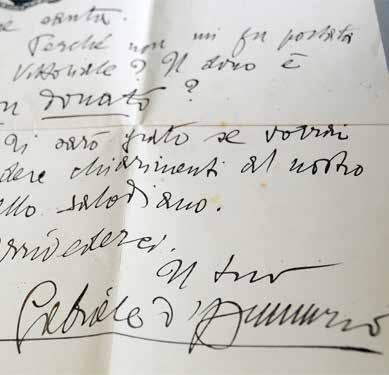 e santa.
Perché non mi fu portata
Vittoriale? Il dono è
n donato?
Ti sarò grato se vorrai
dere chiarimenti al nostro
ello salodiano.
arrivederci.
Il tuo
Gabriele d'Annunzio